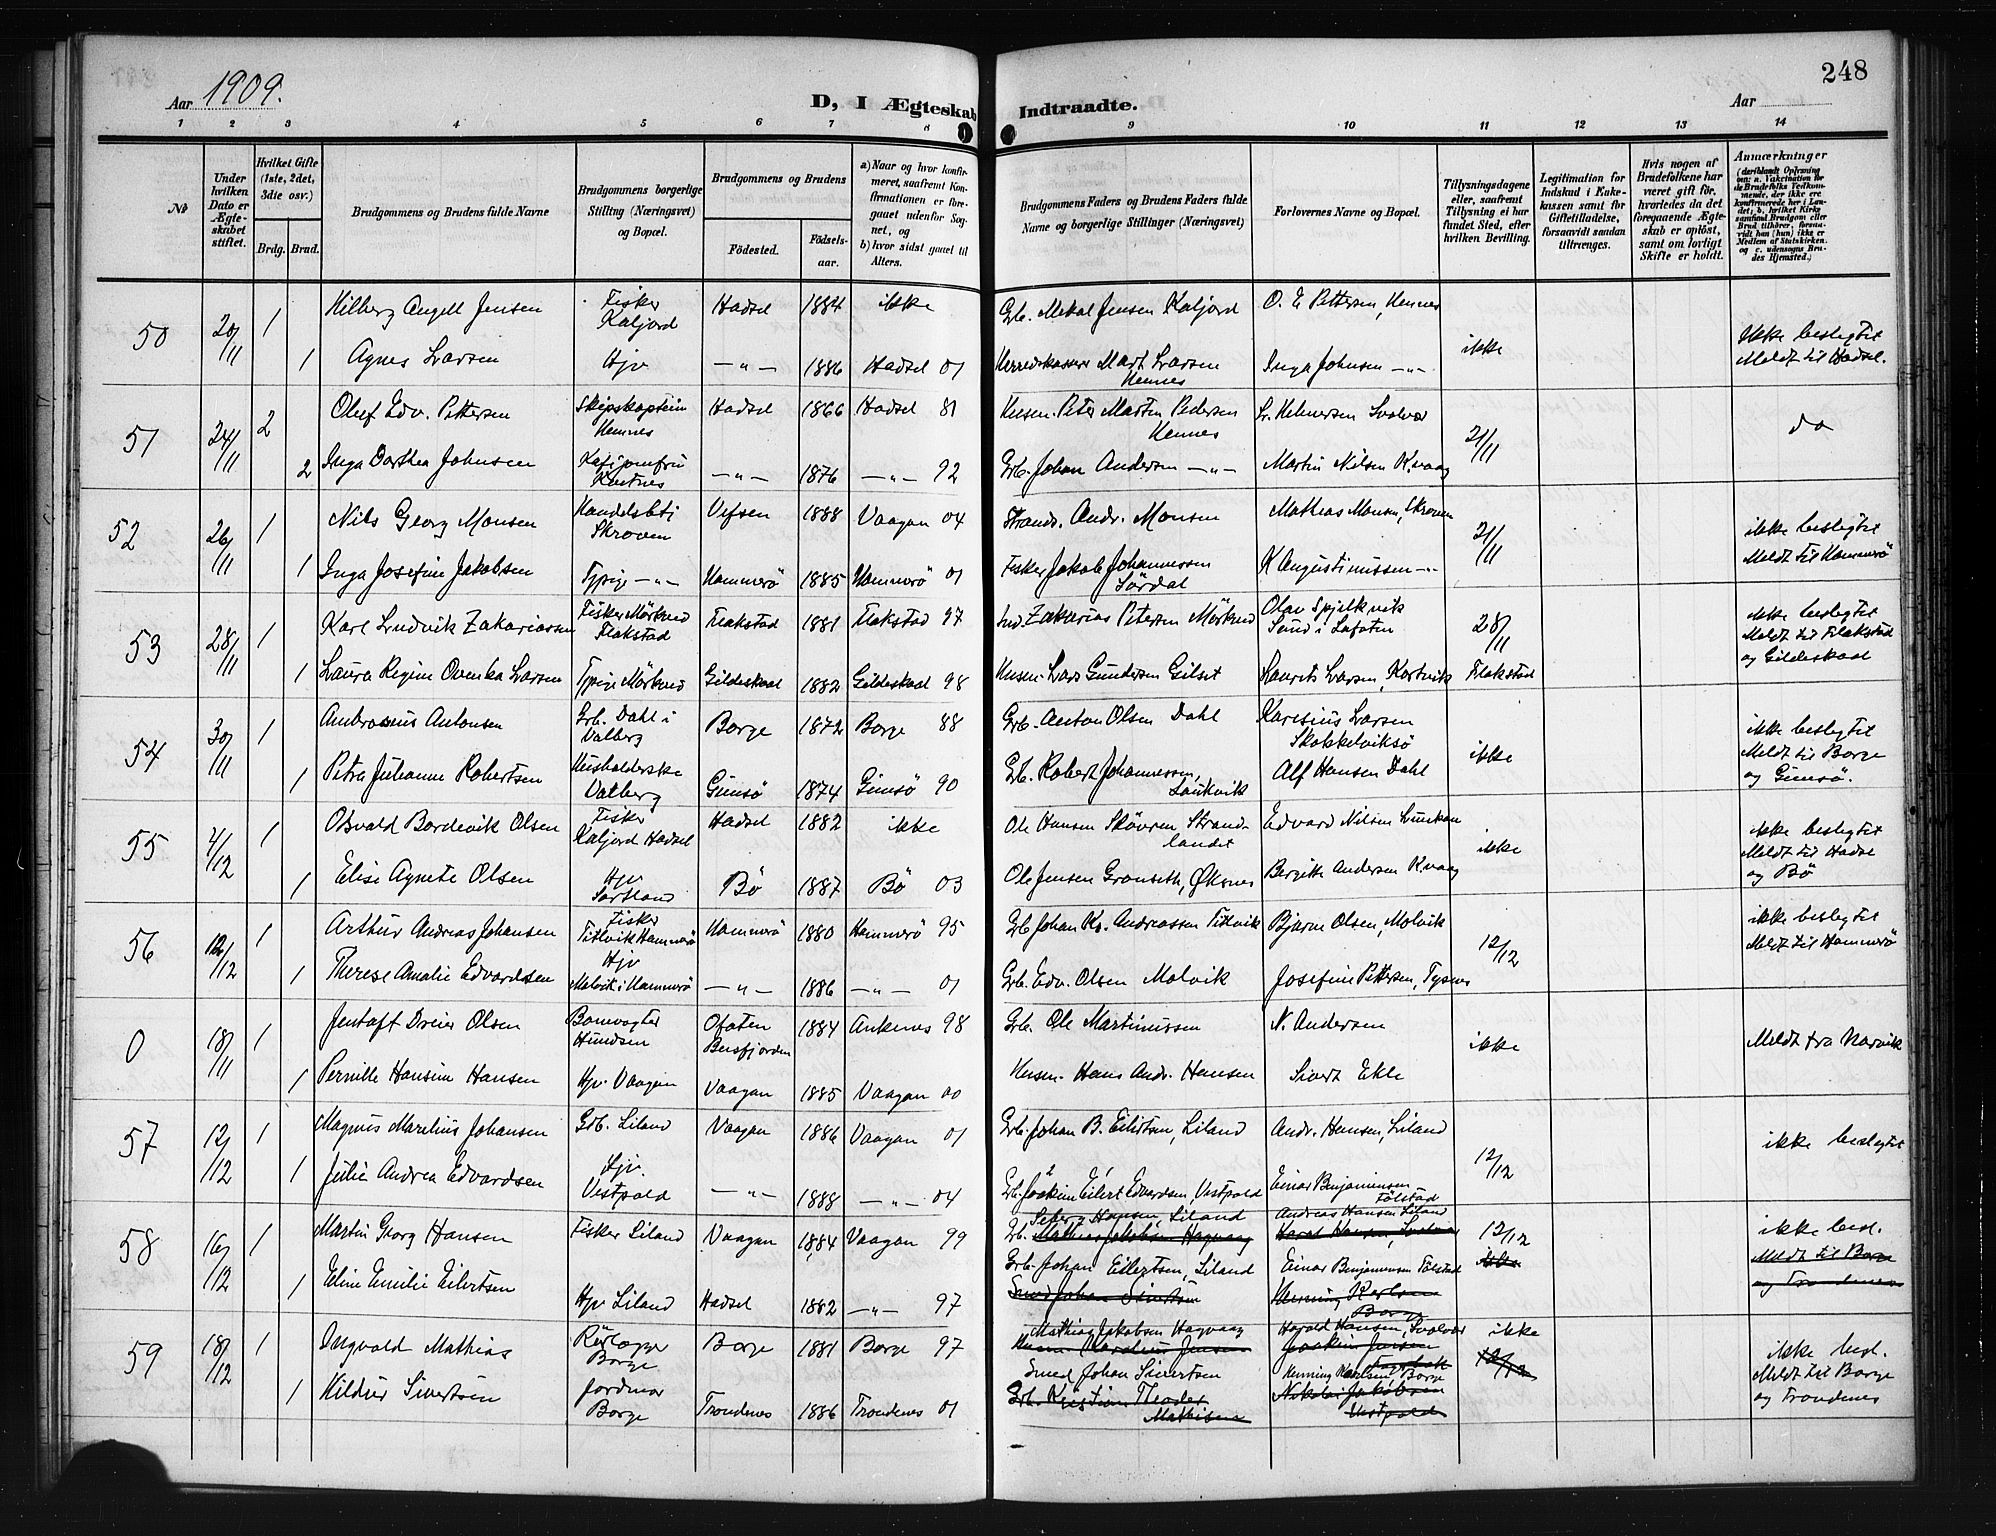 248
Aar 1909.
D, I Ægteskab Indtraadte.
Aar
1 2 3 4 5 6 7 8 9 10 11 12 13 14
No
Under hvilken Dato er Ægteskabet stiftet.
Hvilket Gifte (1ste, 2det, 3die osv.)
Brdg. Brud.
Brudgommens og Brudens fulde Navne
Brudgommens borgerlige Stilling (Næringsvei) og Bopæl.
Brudgommens og Brudens
Födested.
Födselsaar.
a) Naar og hvor konfirmeret, saafremt Konfirmationen er foregaaet udenfor Sognet, og
b) hvor sidst gaaet til Alters.
Brudgommens Faders og Brudens Faders fulde Navne og borgerlige Stillinger (Næringsvei)
Forlovernes Navne og Bopæl.
Tillysningsdagene eller, saafremt Tillysning ei har fundet Sted, efter hvilken Bevilling.
Legitimation for Indskud i Enkekassen samt for Giftetilladelse, forsaavidt saadan tiltrænges.
Hvis nogen af Brudefolkene har været gift för, hvorledes da det foregaaende Ægteskab er oplöst, samt om lovligt Skifte er holdt.
Anmærkninger
(deriblandt Oplysning om: a. Vakcination for de Brudefolks Vedkommende, der ikke ere konfirmerede her i Landet; b. hvilket Kirkesamfund Brudgom eller Brud tilhörer, forsaavidt han (hun) ikke er Medlem af Statskirken, og c. udensogns Brudes Hjemsted.)
50 20/11 1 Hilberg Angell Jensen Fisker Kaljord Hadsel 1884 ikke Grb. Mekal Jensen Kaljord O. E Pettersen, Hennes ikke ikke beslegtet
1 Agnes Larsen Hjv —„— 1886 Hadsel 01 Herredskasserer Mart Larsen Hennes Inga Johnsen —„— Meldt til Hadsel.
51 24/11 2 Oluf Edv. Pettersen Skipskaptein Hennes Hadsel 1866 Hadsel 81 Husm. Peter Martin Pedersen Hennes Helmersen Svolvær 21/11 do
2 Inga Dorthea Johnsen 1876 —„— 92 Grb. Johan Andersen —„— Martin Nilsen Kvaag
52 26/11 1 Nils Georg Monsen Handelsbtj Skroven Vefsen 1888 Vaagan 04 Strands. Andr. Monsen Mathias Monsen, Skroven 21/11 ikke beslegtet
1 Inga Josefine Jakobsen Tjpige —„— Hammerö 1885 Hammerö 01 Fisker Jakob Johannessen Sördal K Augustinussen —„— Meldt til Hammerö
53 28/11 1 Karl Ludvik Zakariassen Fisker Mörkved Flakstad Flakstad 1881 Flakstad 97 Ind. Zakarias Petersen Mörkved Olav Spjelkvik Sund i Lofoten 28/11 ikke beslegtet
1 Laura Regine Ovenka Larsen Tjpige Mörkved Gildeskaal 1882 Gildeskaal 98 Husm. Lars Gundersen Gilset Laurits Larsen, Kortvik Flakstad Meldt til Flakstad og Gildeskaal
54 30/11 1 Ambrosius Antonsen Grb. Dahl i Valberg Borge 1872 Borge 88 Grb. Anton Olsen Dahl Karesius Larsen Skokkelviksö ikke ikke beslegtet
1 Petra Julianne Robertsen Husholderske Valberg Gimsö 1874 Gimsö 90 Grb. Robert Johannessen, Laukvik Alf Hansen Dahl Meldt til Borge og Gimsö.
55 4/12 1 Osvald Bordevik Olsen Fisker Kaljord Hadsel Hadsel 1882 ikke Ole Hansen Skövren Strandlandet Edvard Nilsen ikke ikke beslegtet
1 Elise Agnete Olsen Hjv Sortland Bö 1887 Bö 03 Ole Jensen Öksnes Bergitte Andersen Kvaag Meldt til Hadsel og Bö
56 12/12 1 Arthur Andreas Johansen Fisker Titlvik Hammerö Hammerö 1880 Hammerö 95 Grb Johan Kr. Andreassen Titlvik Bjarne Olsen, Molvik 12/12 ikke beslegtet
1 Therese Amalie Edvardsen Hjv Molvik i Hammerö —„— 1886 —„— 01 Grb. Edv. Olsen Molvik Josefine Pettersen, Tysnes Meldt til Hammerö
0 18/11 1 Jentoft Dreier Olsen Banevogter Hundsen Ofoten Beisfjorden 1884 Ankenes 98 Grb. Ole Martinussen N. Andersen ikke Meldt fra Narvik
1 Pernille Hansine Hansen Hjv. Vaagan Vaagan 1885 Vaagan 00 Husm. Hans Andr. Hansen Sivert Ekle
57 12/12 1 Magnus Marelius Johansen Gdb. Liland Vaagan 1886 Vaagan 01 Grb. Johan B. Eilertsen, Liland Andr. Hansen, Liland 12/12 ikke beslegtet
1 Julie Andrea Edvardsen Hjv. Vestpold —„— 1888 —„— 04 Grb. Joakim Eilert Edvardsen, Vestpold Einar Benjaminsen Fölstad
58 16/12 1 Martin Georg Hansen Fisker Liland Vaagan 1884 Vaagan 99 Grb. Seberg Hansen, Liland Mathias Jakobsen Hagvaag Andreas Hansen Liland Harald Hansen, Svolvær 12/12 ikke besl.
1 Eline Emilie Eilertsen Hjv Liland Hadsel 1882 —„— 97 Grb. Johan Eilertsen, Liland Smed Johan Sivertsen Einar Benjaminsen Fölstad Henning Karlsen Borge ikke Meldt til Borge og Trondenes
59 18/12 1 Ingvald Mathias Borge Borge 1881 Borge 97 Mathias Jakobsen Hagvaag Husm. Karelius Jensen Harald Hansen, Svolvær Joakim Jensen ikke 12/12 ikke besl.
1 Hildur Sivertsen Jordmor Borge Trondenes 1886 Trondenes 01 Smed Johan Sivertsen Grb. Kristian Theodor Mathisen Henning Karlsen Borge Nikolai Jakobsen Vestpold Meldt til Borge og Trondenes